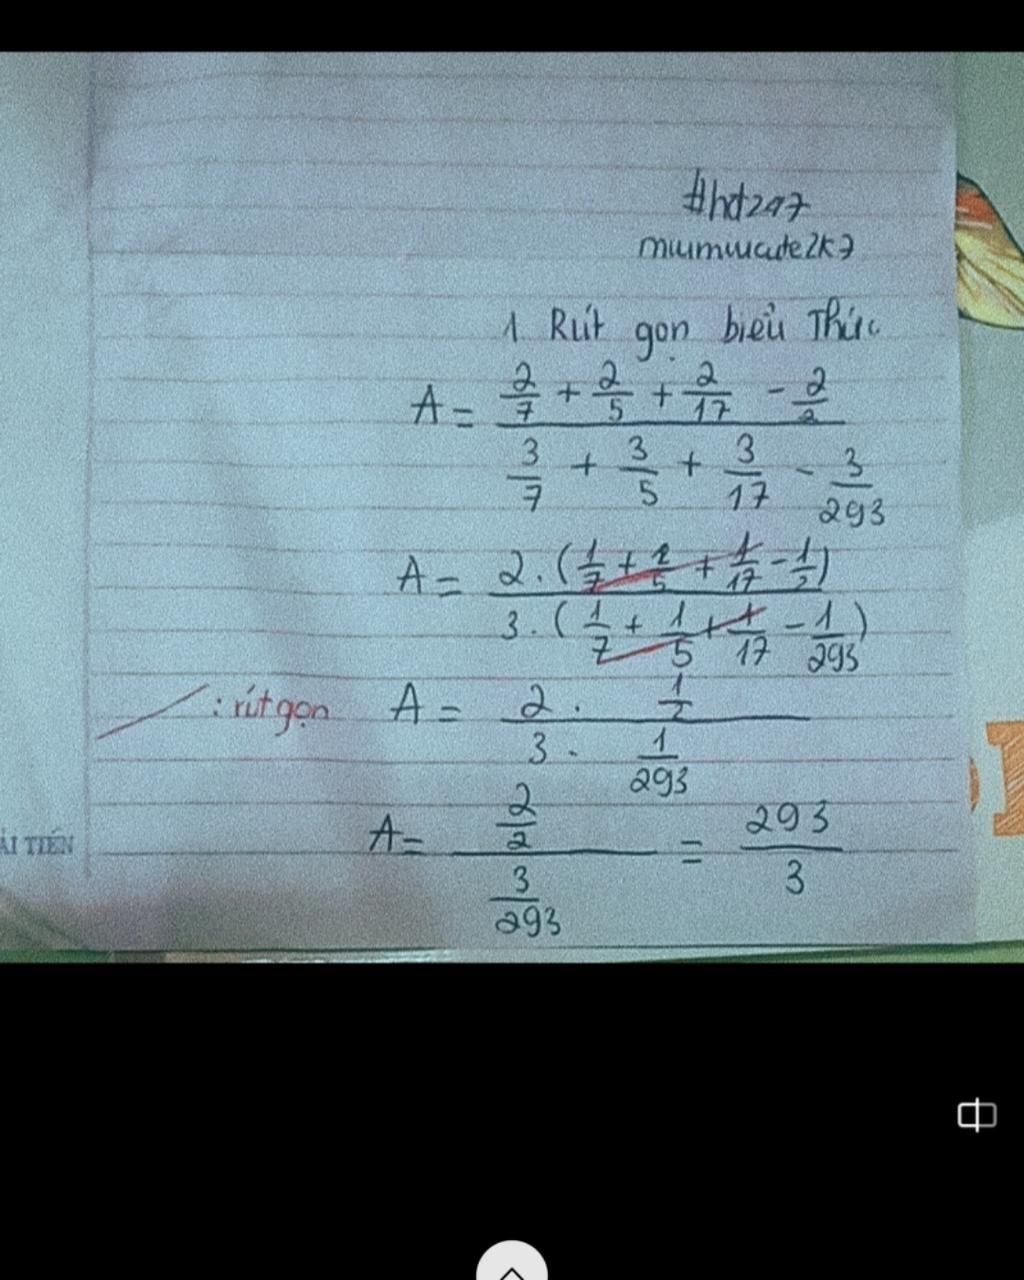 #hd247
miumiucute2k7
1 Rút gọn biểu Thức
A = \frac{\frac{2}{7} + \frac{2}{5} + \frac{2}{17} - \frac{2}{2}}{\frac{3}{7} + \frac{3}{5} + \frac{3}{17} - \frac{3}{293}}
A = \frac{2 . (\frac{1}{7} + \frac{1}{5} + \frac{1}{17} - \frac{1}{2})}{3 . (\frac{1}{7} + \frac{1}{5} + \frac{1}{17} - \frac{1}{293})}
: rút gọn A = \frac{2 . \frac{1}{2}}{3 . \frac{1}{293}}
A = \frac{\frac{2}{2}}{\frac{3}{293}} = \frac{293}{3}
ẢI TIẾN